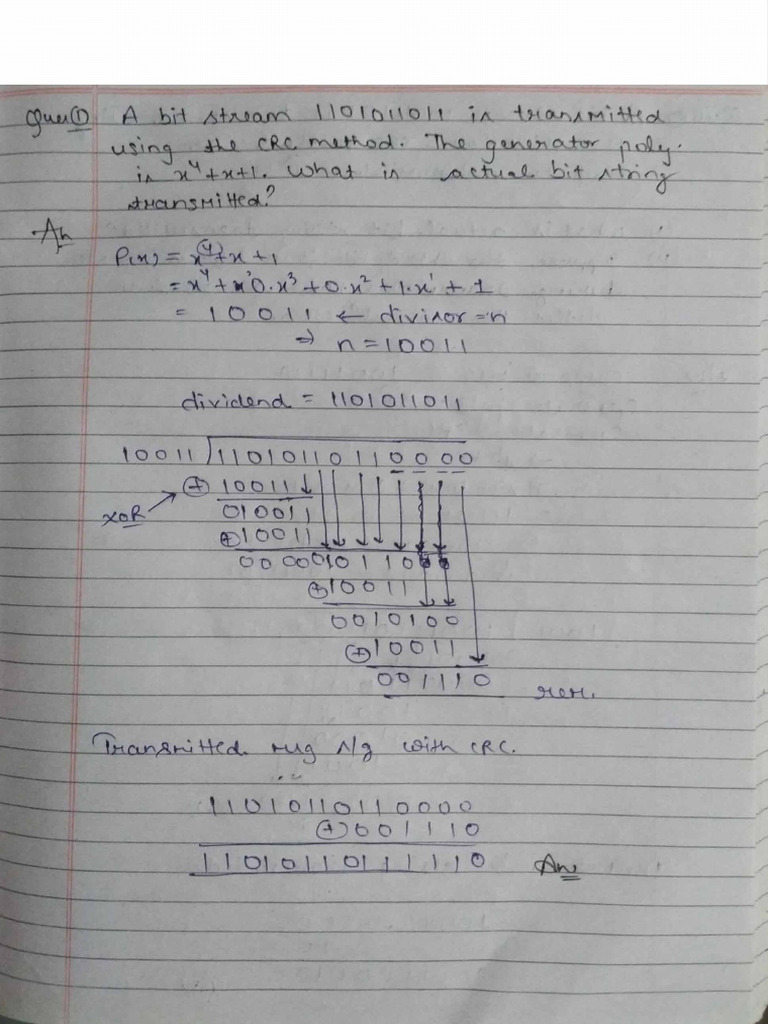 Ques ① A bit stream 1101011011 is transmitted
using the CRC method. The generator poly.
is x⁴+x+1. What is actual bit string
transmitted?
An
P(x) = x⁴+x+1
= x⁴ + 0.x³ + 0.x² + 1.x¹ + 1
= 10011 ← divisor = n
⇒ n = 10011
dividend = 1101011011
10011 ) 11010110110000
XOR → ⊕ 10011
010011
⊕ 10011
⊕ 10011
0010100
⊕ 10011
001110 rem.
Transmitted msg with CRC.
11010110110000
⊕ 001110
11010110111110 Ans